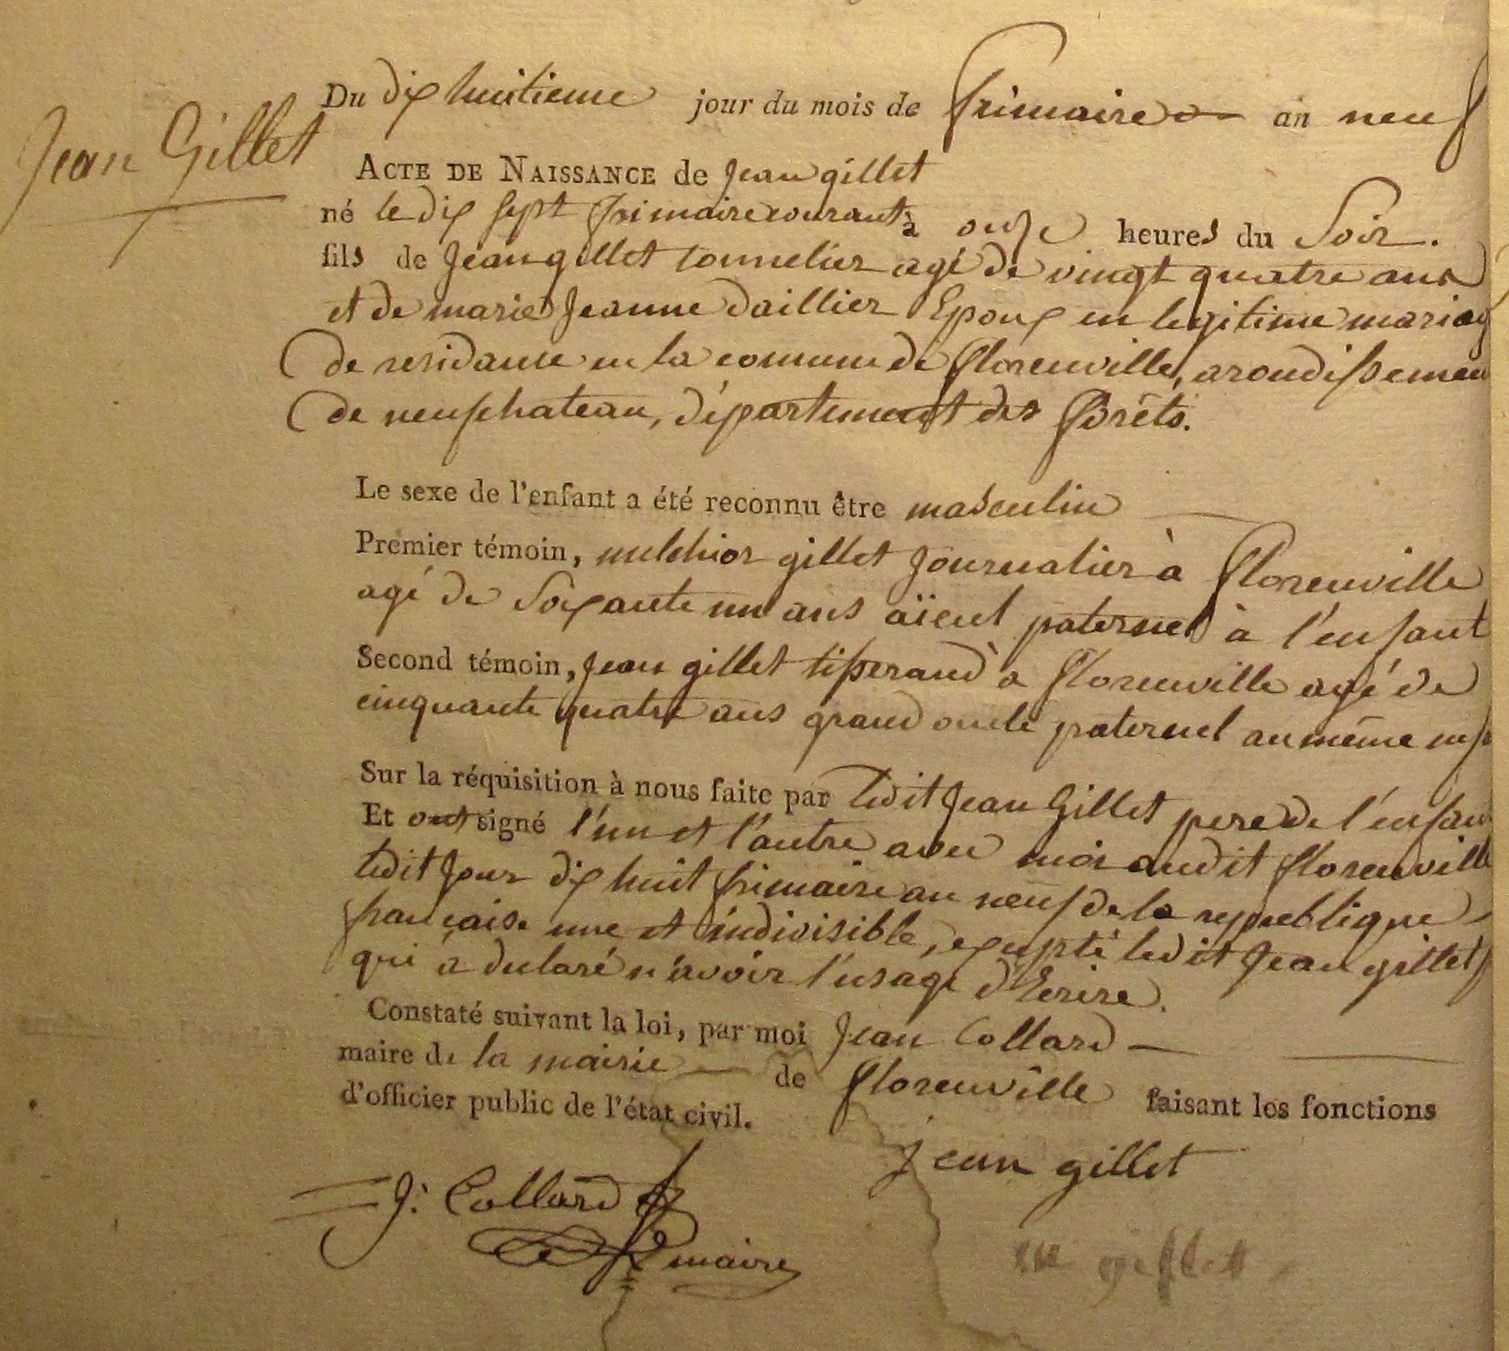 Jean Gillet
Du dix huitieme jour du mois de frimaire an neuf
ACTE DE NAISSANCE de Jean gillet
né le dix sept frimaire courant à onze heures du Soir.
fils de Jean gillet tonnelier agé de vingt quatre ans
et de marie Jeanne daillier Epoux en legitime mariag
de residance en la comune de florenville, arondissemen
de neufchateau, département des forêts.
Le sexe de l'enfant a été reconnu être masculin
Premier témoin, melchior gillet Journalier à florenville
agé de Soixante un ans aïeul paternel à l'enfant
Second témoin, Jean gillet tisserand à florenville agé de
cinquante quatre ans grand oncle paternel au même
Sur la réquisition à nous faite par ledit Jean Gillet pere de l'enfan
Et ont signé l'un et l'autre avec moi audit florenville
ledit Jour dix huit frimaire an neuf de la republique
française une et indivisible, excepté ledit Jean gillet
qui a declaré n'avoir l'usage d'Ecrire.
Constaté suivant la loi, par moi Jean Collard
maire de la mairie de florenville faisant les fonctions
d'officier public de l'état civil.
jean gillet
J: Collard
maire
m gillet